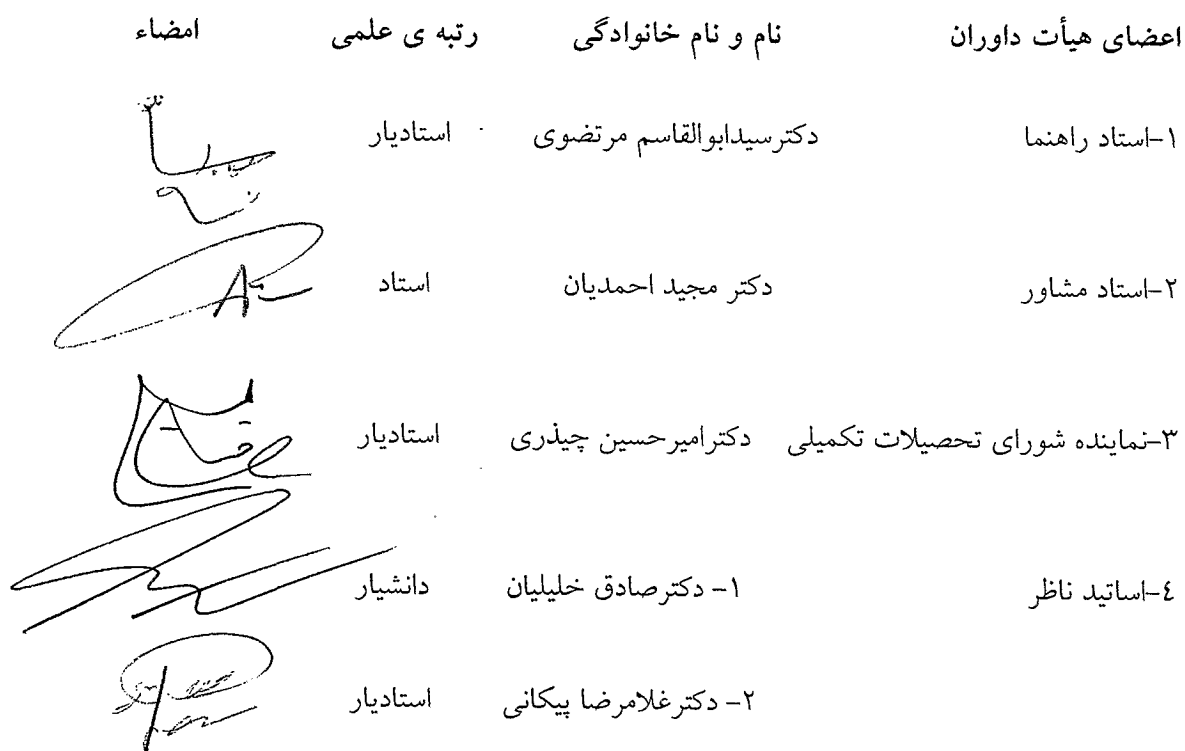 اعضای هیأت داوران نام و نام خانوادگی رتبه ی علمی امضاء
۱-استاد راهنما دکترسیدابوالقاسم مرتضوی استادیار
۲-استاد مشاور دکتر مجید احمدیان استاد
۳-نماینده شورای تحصیلات تکمیلی دکترامیرحسین چیذری استادیار
٤-اساتید ناظر ۱- دکترصادق خلیلیان دانشیار
۲- دکترغلامرضا پیکانی استادیار